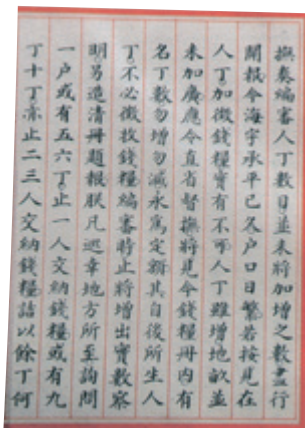 撫奏編審人丁數目並未將加增之數盡行
開報今海宇承平已久户口日繁若按見在
人丁加徵錢糧實有不可人丁雖增地畝並
未加廣應令直省督撫將見今錢糧册内有
名丁數勿增勿減永爲定額其自後所生人
丁不必徵收錢糧編審時止將增出實數察
明另造清册題報朕凡巡幸地方所至詢問
一户或有五六丁止一人交納錢糧或有九
丁十丁亦止二三人交納錢糧詰以餘丁何